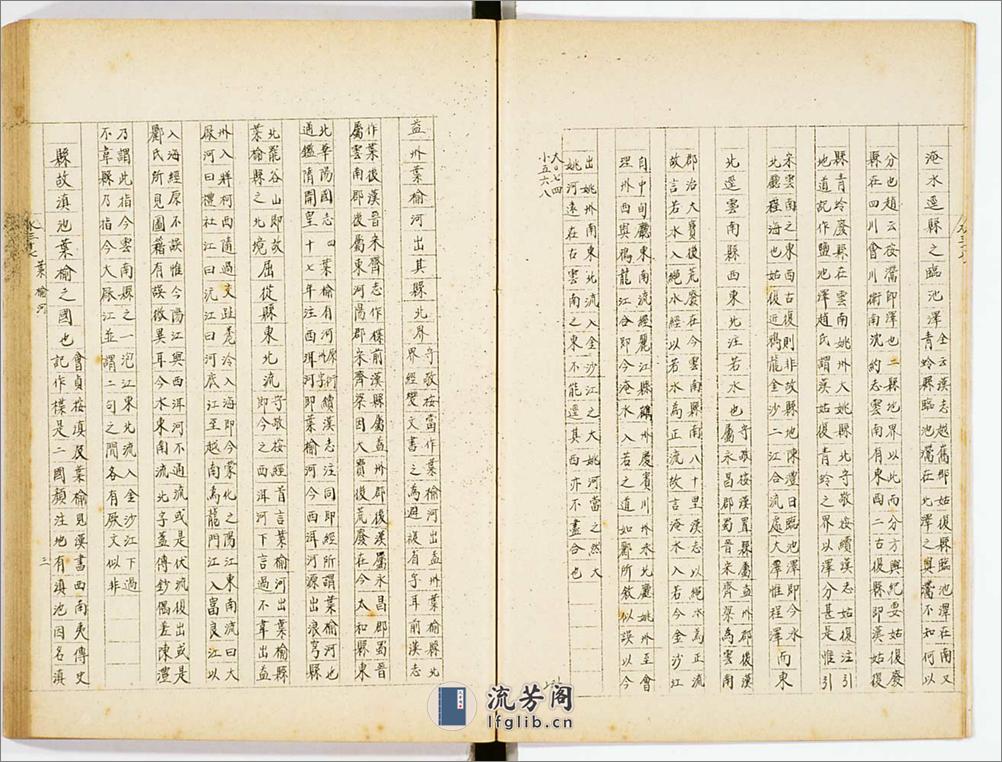 淹水逕縣之臨池澤全云漢志越巂郡姑復縣臨池澤在南又
青蛉縣臨池灊在北澤之與灊不知何以
分也趙云按灊即澤也二縣地界以此而分方輿紀要姑復廢
縣在四川會川衛南沈約志雲南有東西二古復縣即漢姑復
縣青蛉廢縣在雲南姚州大姚縣北守敬按續漢志姑復注引
地道記作鹽池澤趙氏謂漢姑復青蛉之界以澤分甚是惟引
宋雲南之東西古復則非故縣地陳澧曰臨池澤即今永
北廳程海也姑復近鴉龍金沙二江合流處大澤惟程澤而東
北逕雲南縣西東北注若水也守敬按漢置縣屬益州郡後漢
屬永昌郡蜀晉宋齊梁為雲南
郡治大寶後荒廢在今雲南縣南八十里漢志以絕水為正流
故言若水入絕水經以若水為正流故言淹水入若今金沙江
自中甸廳東南流經麗江縣鶴慶州賓川州永北廳姚州至會
理州西與鴉龍江合即今淹水入若之道如酈所敘似誤以今
出姚州南東北流入金沙江之大姚河當之然大
姚河遠在古雲南之東不能逕其西亦不盡合也
大〇七四
小五六八
益州葉榆河出其縣北界守敬按當作葉榆河出益州葉榆縣北
界經變文書之為避複省字耳前漢志
作葉後漢晉宋齊志作楪前漢縣屬益州郡後漢屬永昌郡蜀晉
屬雲南郡後屬東河陽郡宋齊梁因大寶後荒廢在今太和縣東
北華陽國志四葉榆有河州劉續漢志注同即經所謂葉榆河也
通鑑隋開皇十七年注西洱河即葉榆河今西洱河源出浪穹縣
北罷谷山即故
葉榆縣之北境屈從縣東北流守敬按經首言葉榆河出葉榆縣
即今之西洱河下言過不韋出益
州入牂柯西隨過交趾𢋨泠入海即今蒙化之陽江東南流曰大
厫河曰禮社江曰沅江曰河底江至越南為龍門江入富良江以
入海經原不誤惟今陽江與西洱河不通流或是伏流復出或是
酈氏所見圖籍有誤徵異耳今水東南流北字蓋傳鈔偶差陳澧
乃謂此指今雲南縣之一泡江東北流入金沙江下過
不韋縣乃指今大厫江並謂二句之間各有厥文似非
縣故滇池葉榆之國也會貞按滇及葉榆見漢書西南夷傳史
記作楪是二國顏注地有滇池因名滇
水三十七
葉榆河
三
流芳阁
lfglib.cn